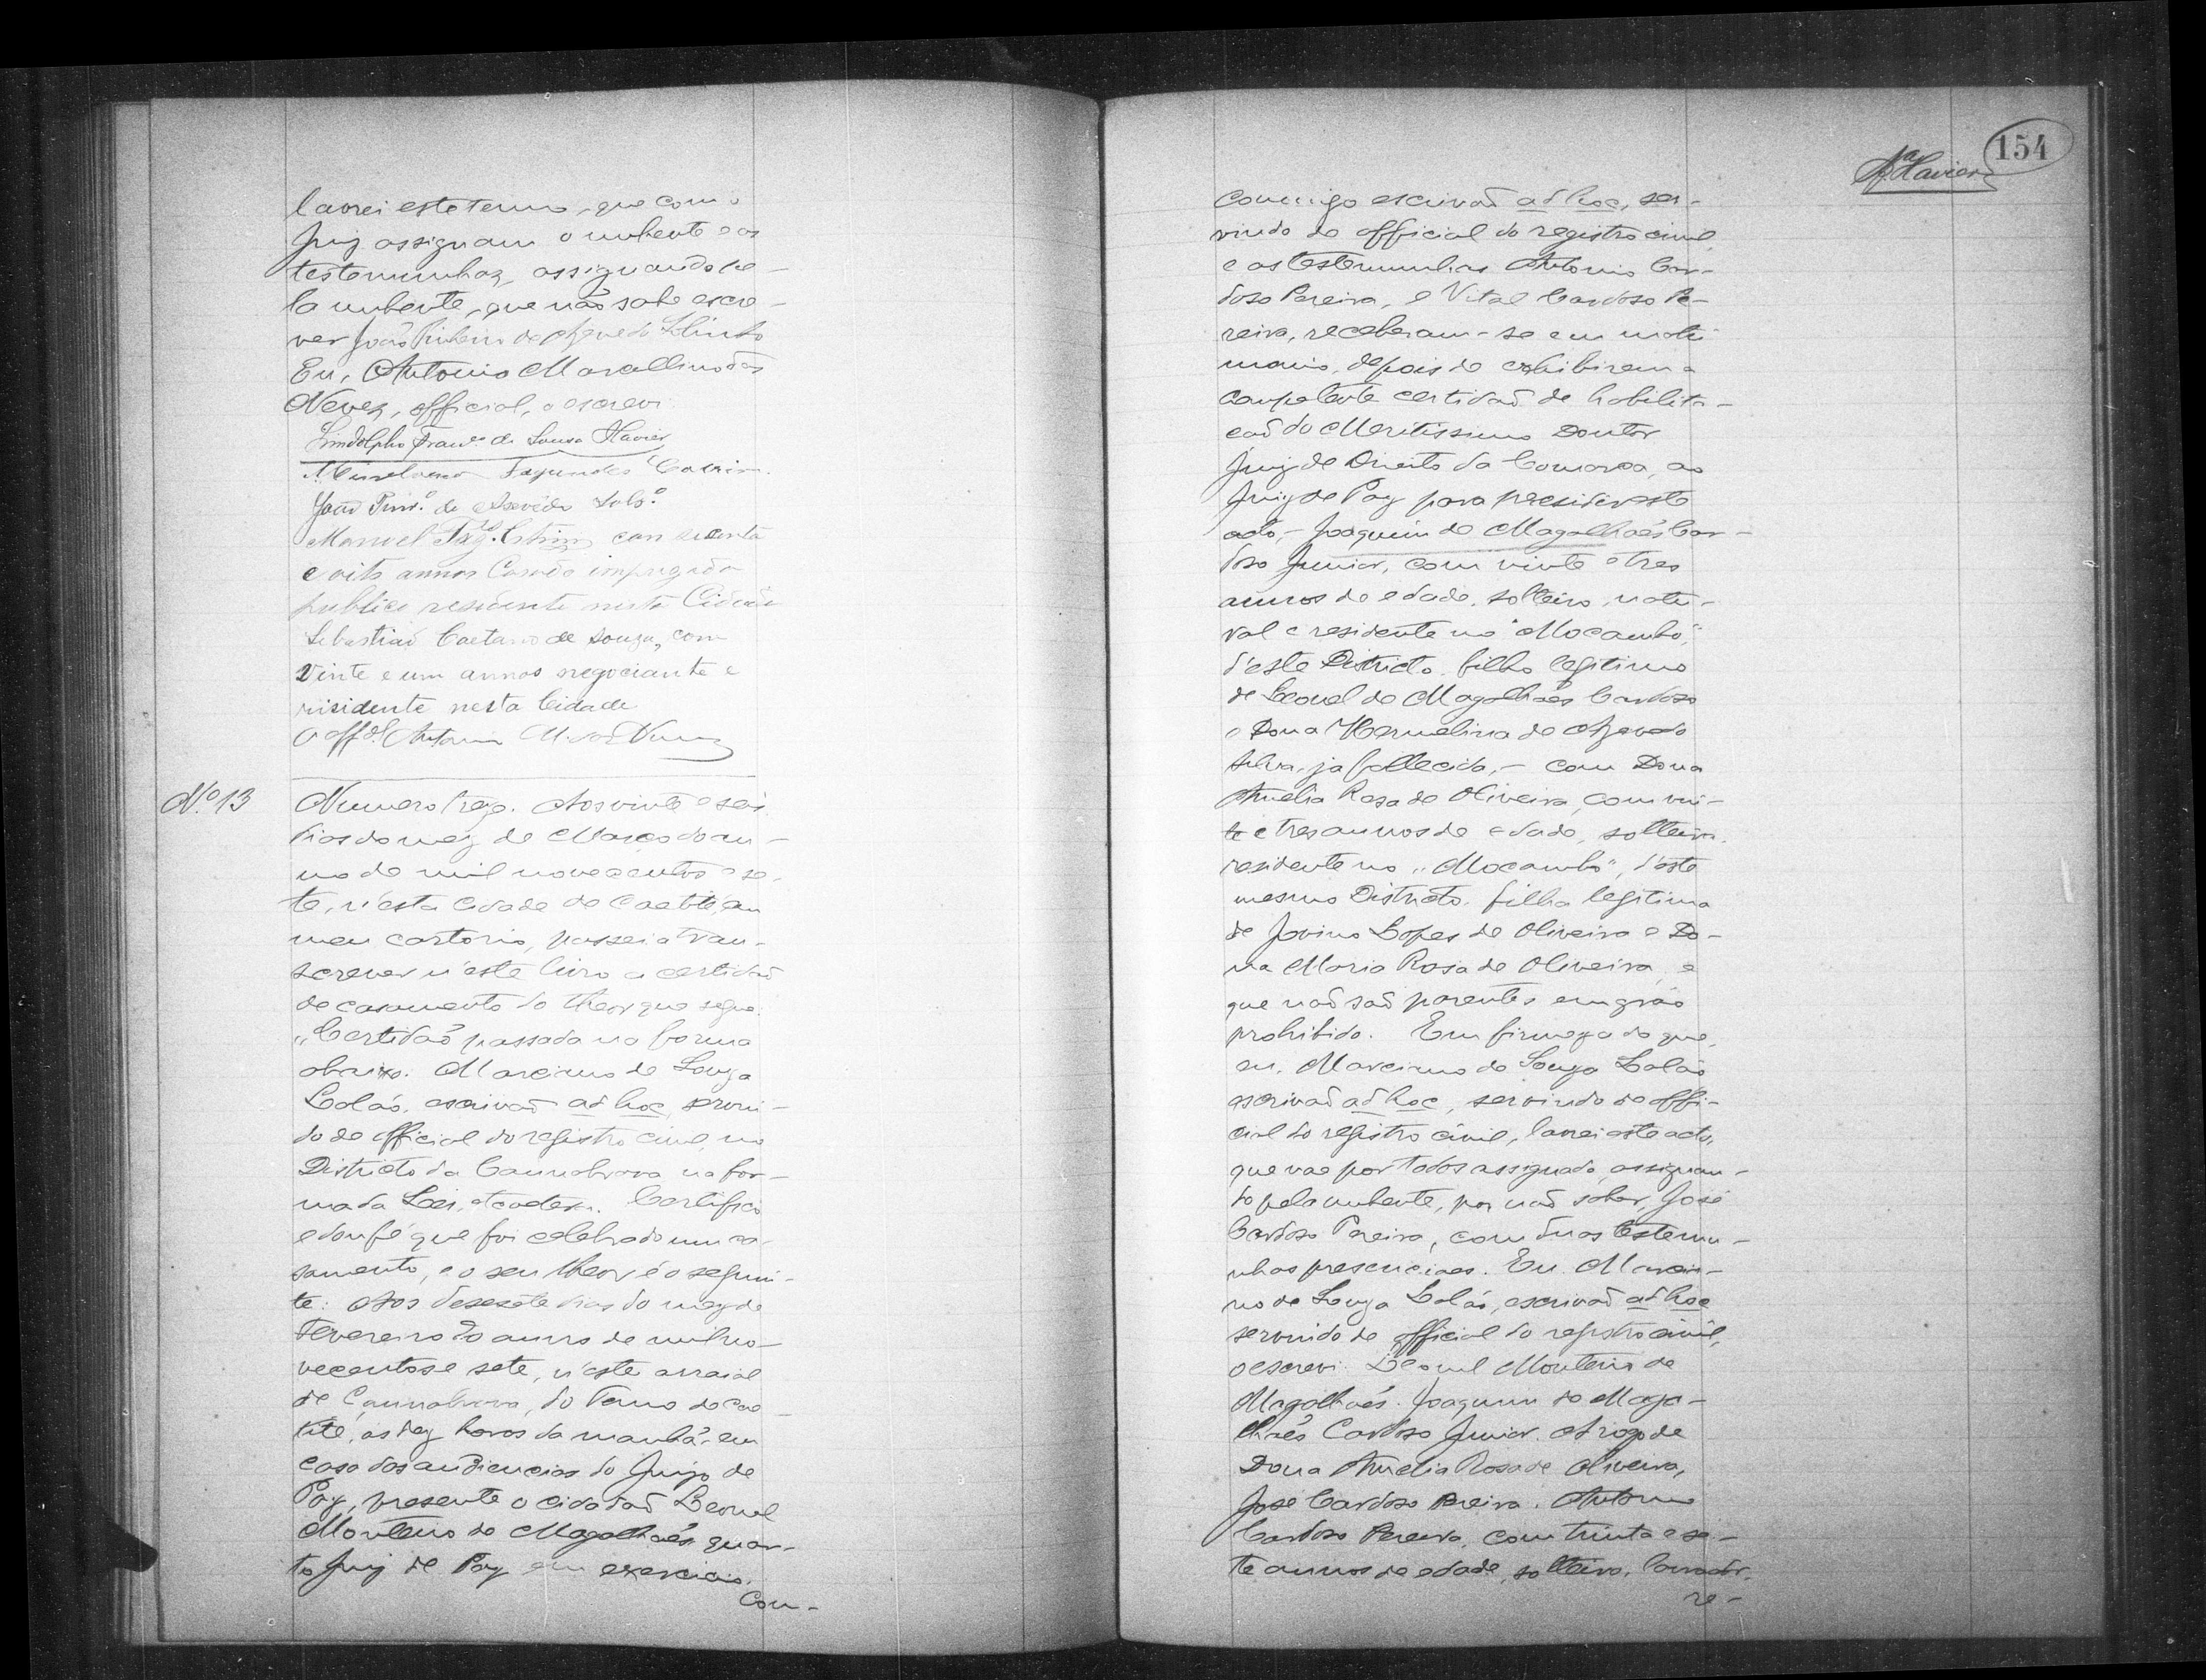 lavrei este termo, que com o
Juiz assignam o nubente e as
testemunhas, assignando pe-
la nubente, que não sabe escre-
ver João Pinheiro de Azevedo Sobinho
Eu, Antonio Marcellino das
Neves, official, o escrevi
Lindolpho Franco de Sousa Xavier
Fagundes Cotrim
João Pinrº de Azevedo Sobº
Manoel Fagdes Cotrim con secenta
e oito annos Casado impregado
publico residente nesta Cidade
Sebastião Caetano de Souza, com
Vinte e um annos negociante e
risidente nesta Cidade
O offal Antonio M. das Neves
Nº 13
Numero treze. Aos vinte e seis
dias do mez de Março do an-
no de mil novecentos e se-
te, n'esta cidade de Caetité, em
meu cartorio, passei a tran-
screver n'este livro a certidaõ
de casamento do theor que segue.
"Certidaõ passada na forma
abaixo. Marcimo de Souza
Lolás, escrivaõ ad hoc, servin-
do de official do registro civil, no
Districto da Cannabrava na for-
ma da Lei, etcoetera. Certifico
e dou fé que foi celebrado um ca-
samento, e o seu theor é o seguin-
te: Aos desesete dias do mez de
Fevereiro do anno de mil no-
vecentos e sete, n'este arraial
de Cannabrava, do Termo de Cae-
tité, as dez horas da manhã, em
casa das audiencias do Juizo de
Paz, presente o cidadaõ Leonel
Monteiro de Magalhaés, quar-
to Juiz de Paz em exercicio,
Com-
154
Xavier
commigo escrivaõ ad hoc, ser-
vindo de official do registro civil,
e as testemunhas Antonio Car-
doso Pereira, e Vital Cardoso Pe-
reira, receberam-se em matri-
monio, depois de exhibirem a
competente certidaõ de habilita-
çaõ do Meritissimo Doutor
Juiz de Direito da Comarca, ao
Juiz de Paz para presidir este
acto,- Joaquim de Magalhaés Car-
doso Junior, com vinte e tres
annos de edade, solteiro, natu-
ral e residente no "Mocambo,"
d'este Districto, filho legitimo
de Leonel de Magalhaés Cardoso
e Dona Hermelina de Azevedo
Silva, ja fallecida,- com Dona
Amelia Rosa de Oliveira, com vin-
te e tres annos de edade, solteira,
residente no "Mocambo", d'este
mesmo Districto, filha legitima
de Jovino Lopes de Oliveira e Do-
na Maria Rosa de Oliveira, e
que naõ saõ parentes em gráo
prohibido. Em firmeza do que,
eu, Marcimo de Souza Lolás
escrivaõ ad hoc, servindo de offi-
cial do registro civil, lavrei este acto,
que vae por todos assignado, assignan-
do pela nubente, por naõ saber, José
Cardoso Pereira, com duas testemu-
nhas presenciaes. Eu Marci-
mo de Souza Lolás, escrivaõ ad hoc
servindo de official do registro civil,
o escrevi. Leonel Monteiro de
Magalhaés. Joaquim de Maga-
lhaés Cardoso Junior. A rogo de
Dona Amelia Rosa de Oliveira,
José Cardoso Pereira. Antonio
Cardoso Pereira, com trinta e se-
te annos de edade, solteiro, lavrador,
re-